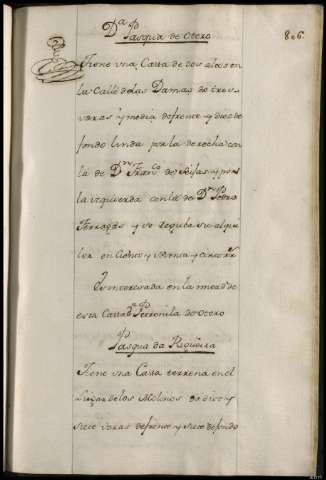 Dª Pasqua de Otero
826
Tiene vna Cassa de dos altos en
la Calle de las Damas de tres
varas y media de frente y diez de
fondo linda por la derecha con
la de Dn Franco de Seijas y por
la izquierda con la de Dn Pedro
y se regula su alqui
ler en Ciento y treinta y cinco rrs
Es interesada en la mitad de
esta Cassa dª Petronila de Otero
Pasqua da Rigueira
Tiene vna Cassa terrena en el
Lugar de los Molinos de diez y
siete varas de frente y siete de fondo